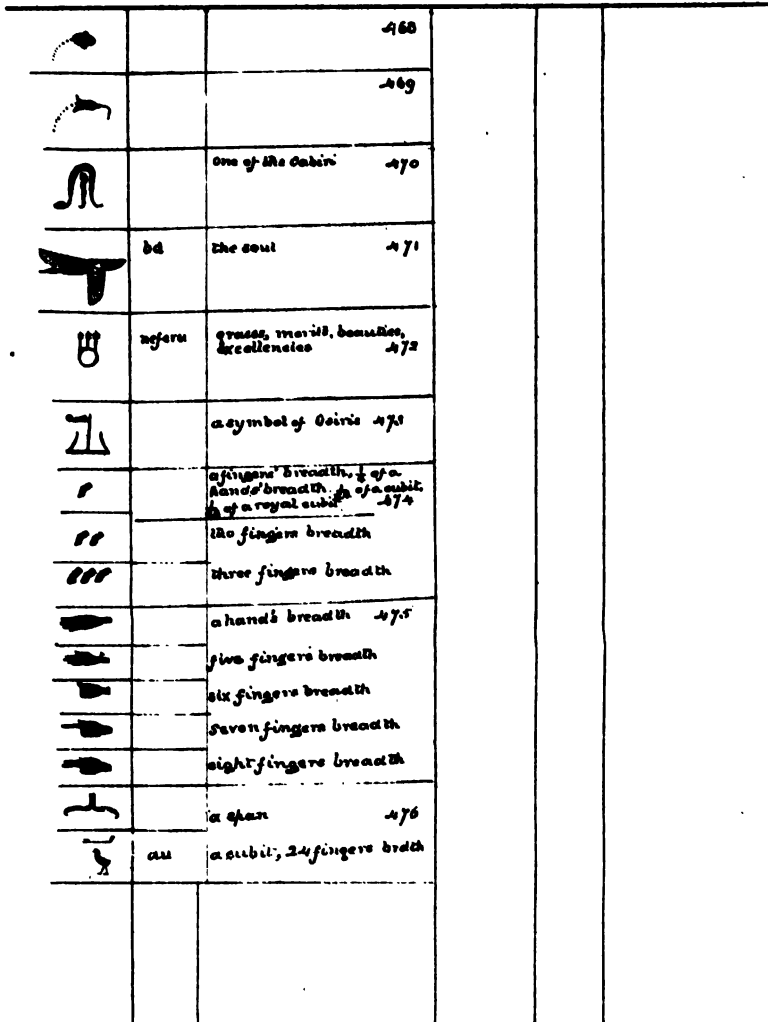 468
469
one of the Cabiri 470
bd the soul 471
neferu graces, merits, beauties,
excellencies 472
a symbol of Osiris 473
a fingers' breadth, ¼ of a
hands' breadth of a cubit,
of a royal cubit 474
two fingers breadth
three fingers breadth
a hand's breadth 475
five fingers breadth
six fingers breadth
seven fingers breadth
eight fingers breadth
a span 476
au a cubit, 24 fingers brdth